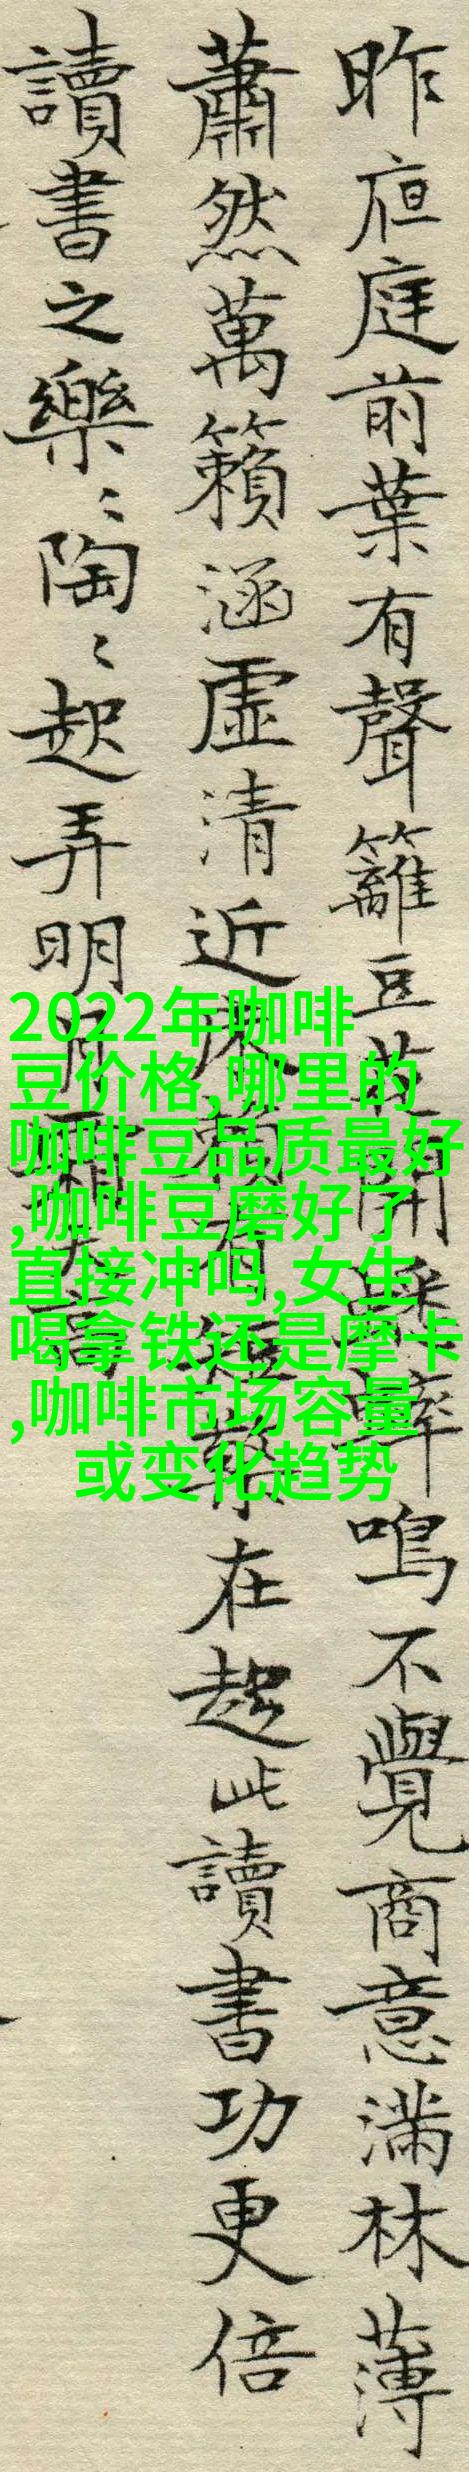 昨夜庭前葉有聲籬豆花開蟋蟀鳴不覺商意滿林薄
蕭然萬籟涵虛清近床賴有短檠在起此讀書功更倍
讀書之樂〻陶〻起弄明月霜天高
2022年咖啡
豆价格,哪里的
咖啡豆品质最好
,咖啡豆磨好了
直接冲吗,女生
喝拿铁还是摩卡
,咖啡市场容量
或变化趋势